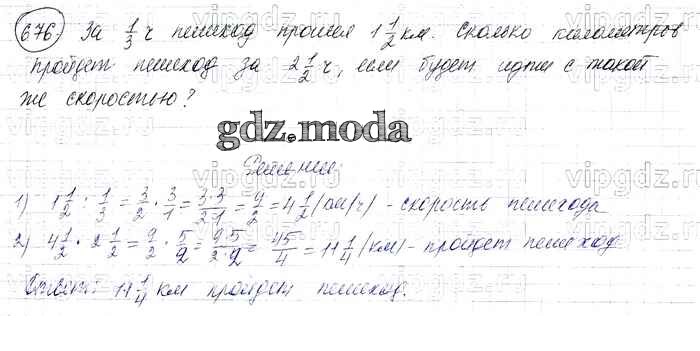 676. За 1/3 ч пешеход прошел 1 1/2 км. Сколько километров
пройдет пешеход за 2 1/2 ч, если будет идти с такой
же скоростью?
gdz.moda
Решение:
1) 1 1/2 : 1/3 = 3/2 · 3/1 = 3·3/2·1 = 9/2 = 4 1/2 (км/ч) - скорость пешехода
2) 4 1/2 · 2 1/2 = 9/2 · 5/2 = 9·5/2·2 = 45/4 = 11 1/4 (км) - пройдет пешеход
Ответ: 11 1/4 км пройдет пешеход.
vipgdz.ru